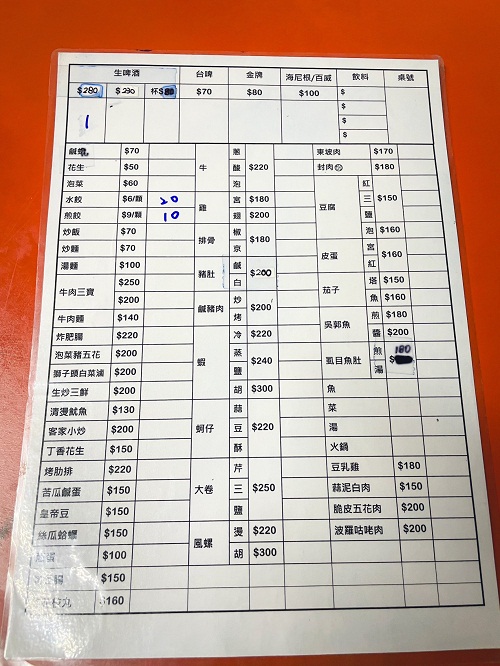 生啤酒 台啤 金牌 海尼根/百威 飲料 桌號
$280 $230 杯$80 $70 $80 $100 $
1 $
$
$
鹹 $70
花生 $50
泡菜 $60
水餃 $6/顆 20
煎餃 $9/顆 10
炒飯 $70
炒麵 $70
湯麵 $100
牛肉三寶 $250
$200
牛肉麵 $140
炸肥腸 $220
泡菜豬五花 $200
獅子頭白菜滷 $200
生炒三鮮 $200
清燙魷魚 $130
客家小炒 $200
丁香花生 $150
烤肋排 $220
苦瓜鹹蛋 $150
皇帝豆 $150
絲瓜蛤蠣 $150
蛋 $100
腸 $150
丸 $160
牛 蔥 酸 泡 $220
雞 宮 $180
翅 $200
排骨 椒 京 $180
豬肚 鹹 白 $200
鹹豬肉 炒 烤 $200
蝦 冷 $220
蒸 鹽 $240
胡 $300
蚵仔 蒜 豆 酥 $220
大卷 芹 三 鹽 $250
風螺 燙 $220
胡 $300
東坡肉 $170
封肉 $180
豆腐 紅 三 鹽 $150
泡 $160
皮蛋 宮 紅 $160
茄子 塔 $150
魚 $160
吳郭魚 煎 $180
醬 $200
虱目魚肚 煎 湯 180
魚
菜
湯
火鍋
豆乳雞 $180
蒜泥白肉 $150
脆皮五花肉 $200
波羅咕咾肉 $200